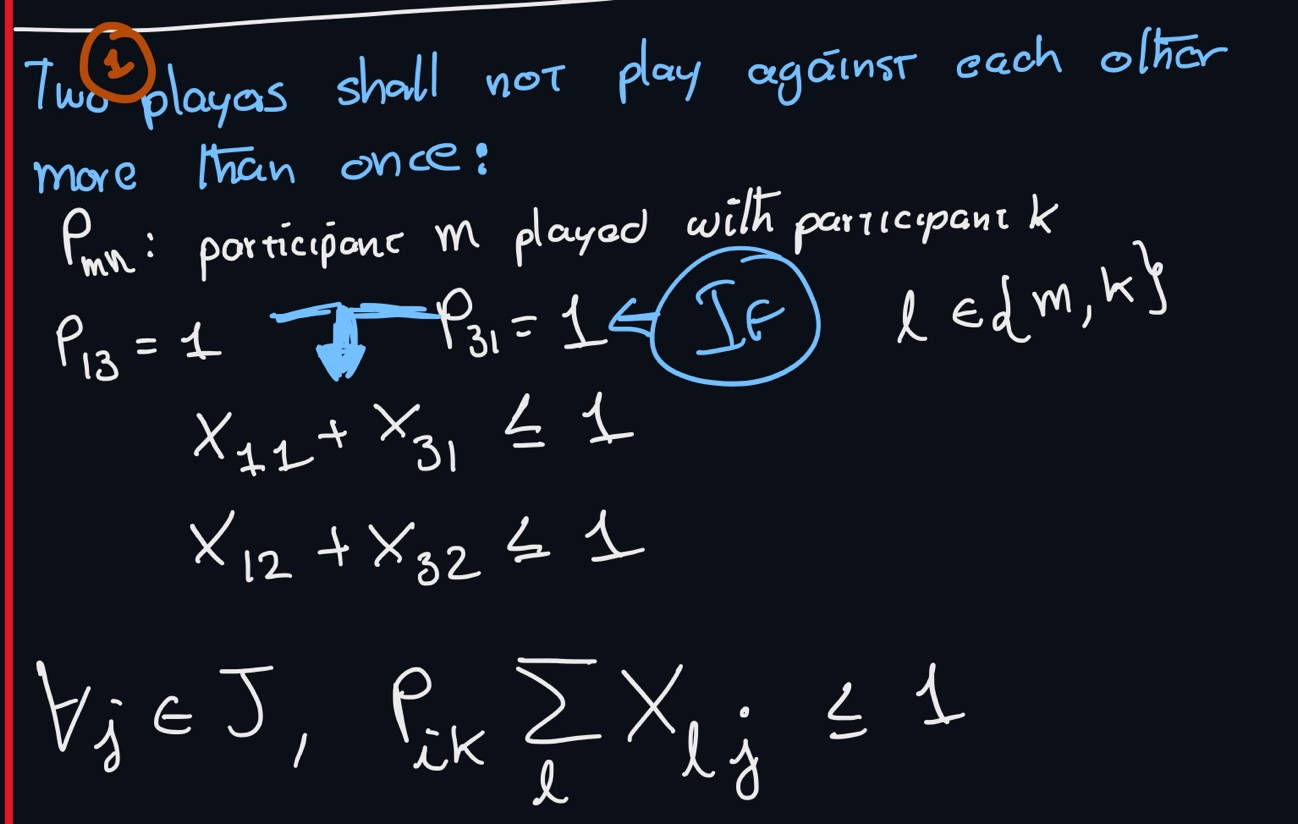 1
Two players shall not play against each other
more than once:
P_mn: participant m played with participant k
P_13 = 1 P_31 = 1 ⇐ IF l ∈ {m, k}
X_11 + X_31 ≤ 1
X_12 + X_32 ≤ 1
∀j ∈ J, P_ik ∑_l X_lj ≤ 1